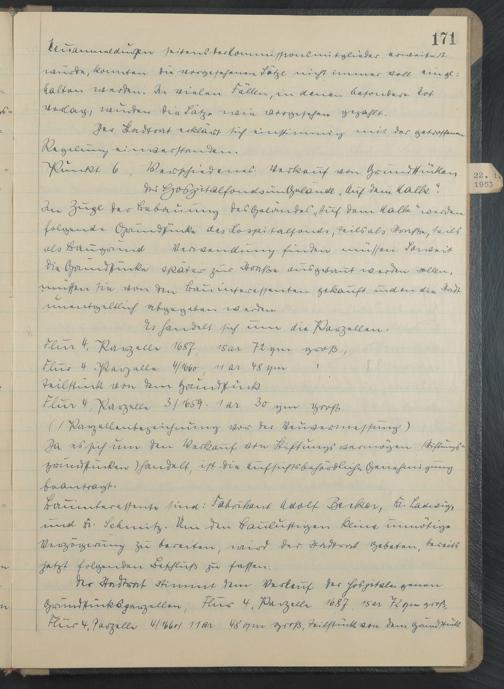 171
22. 1.
1953
Neuanmeldungen seitens der Kommissionsmitglieder erweitert
wurde, konnten die vorgesehenen Sätze nicht immer voll einge-
halten werden. In vielen Fällen, in denen besondere Not
vorlag, wurden die Sätze wie vorgesehen gezahlt.
Der Stadtrat erklärt sich einstimmig mit der getroffenen
Regelung einverstanden.
Punkt 6. Verschiedenes Verkauf von Grundstücken
des Hospitalfonds im Gelände "Auf dem Kalk".
Im Zuge der Bebauung des Geländes "Auf dem Kalk" werden
folgende Grundstücke des Hospitalfonds, teils als Straße, teils
als Baugrund Verwendung finden müssen. Soweit
die Grundstücke später zur Straße ausgebaut werden sollen,
müssen sie von den Bauinteressenten gekauft und an die Stadt
unentgeltlich abgegeben werden
Es handelt sich um die Parzellen.
Flur 4, Parzelle 1687, 15 ar 72 qm groß,
Flur 4 Parzelle 4/1660, 11 ar 48 qm "
Teilstück von dem Grundstück
Flur 4, Parzelle 3/1659. 1 ar 30 qm groß
(Parzellenbezeichnung vor der Neuvermessung)
Da es sich um den Verkauf von Stiftungsvermögen (Stiftungs-
grundstücken) handelt, ist die aufsichtsbehördliche Genehmigung
beantragt.
Bauinteressente sind: Fabrikant Adolf Becker, Dr. Ludwig,
und Dr. Schmitz. Um den Baulustigen keine unnötige
Verzögerung zu bereiten, wird der Stadtrat gebeten, bereits
jetzt folgenden Beschluß zu fassen:
Der Stadtrat stimmt dem Verkauf der hospitaleigenen
Grundstücksparzellen, Flur 4, Parzelle 1687 15 ar 72 qm groß,
Flur 4, Parzelle 4/1660 11 ar 48 qm groß, Teilstück von dem Grundstück